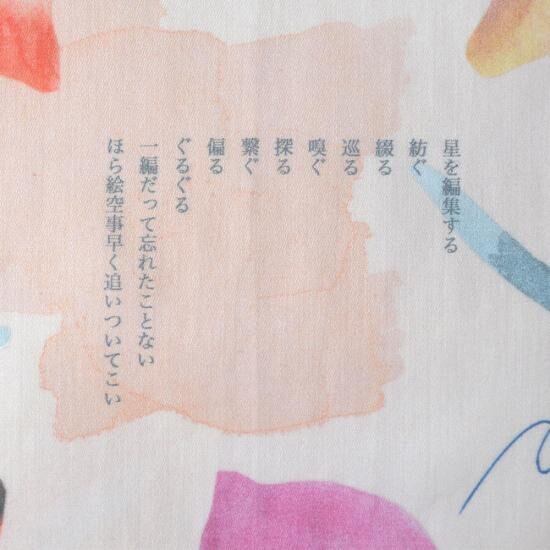 星を編集する
紡ぐ
綴る
巡る
嗅ぐ
探る
繋ぐ
偏る
ぐるぐる
一編だって忘れたことない
ほら絵空事早く追いついてこい